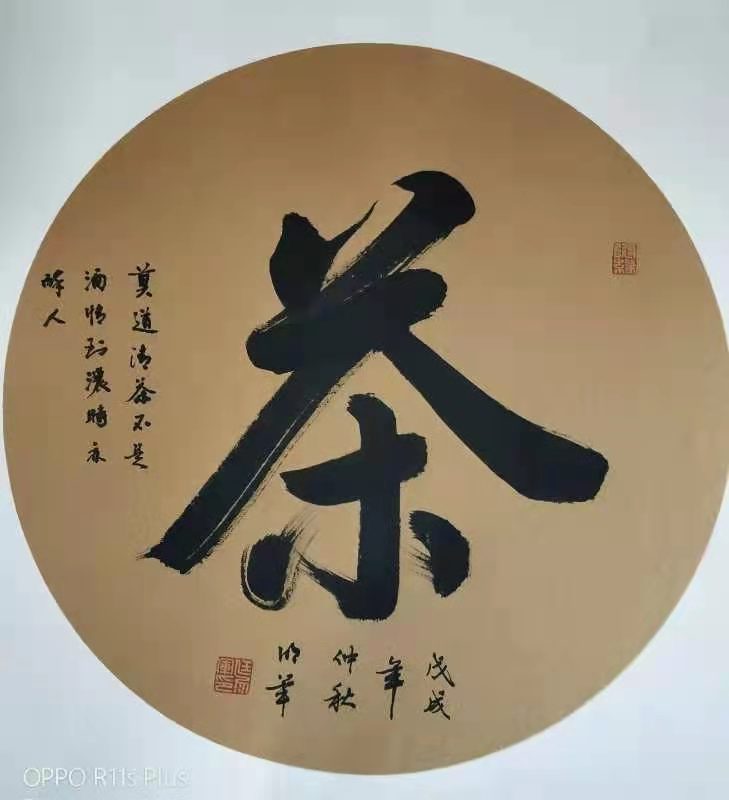 茶
莫道清茶不是
酒情到浓时亦
醉人
戊戌
年
仲秋
明华
OPPO R11s Plus